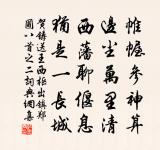 帷幄參神算
邊塵萬里清
西藩聊偃息
猶是一長城
賀鑄送王西樞出鎮鄭
圃八首之二詞典網集